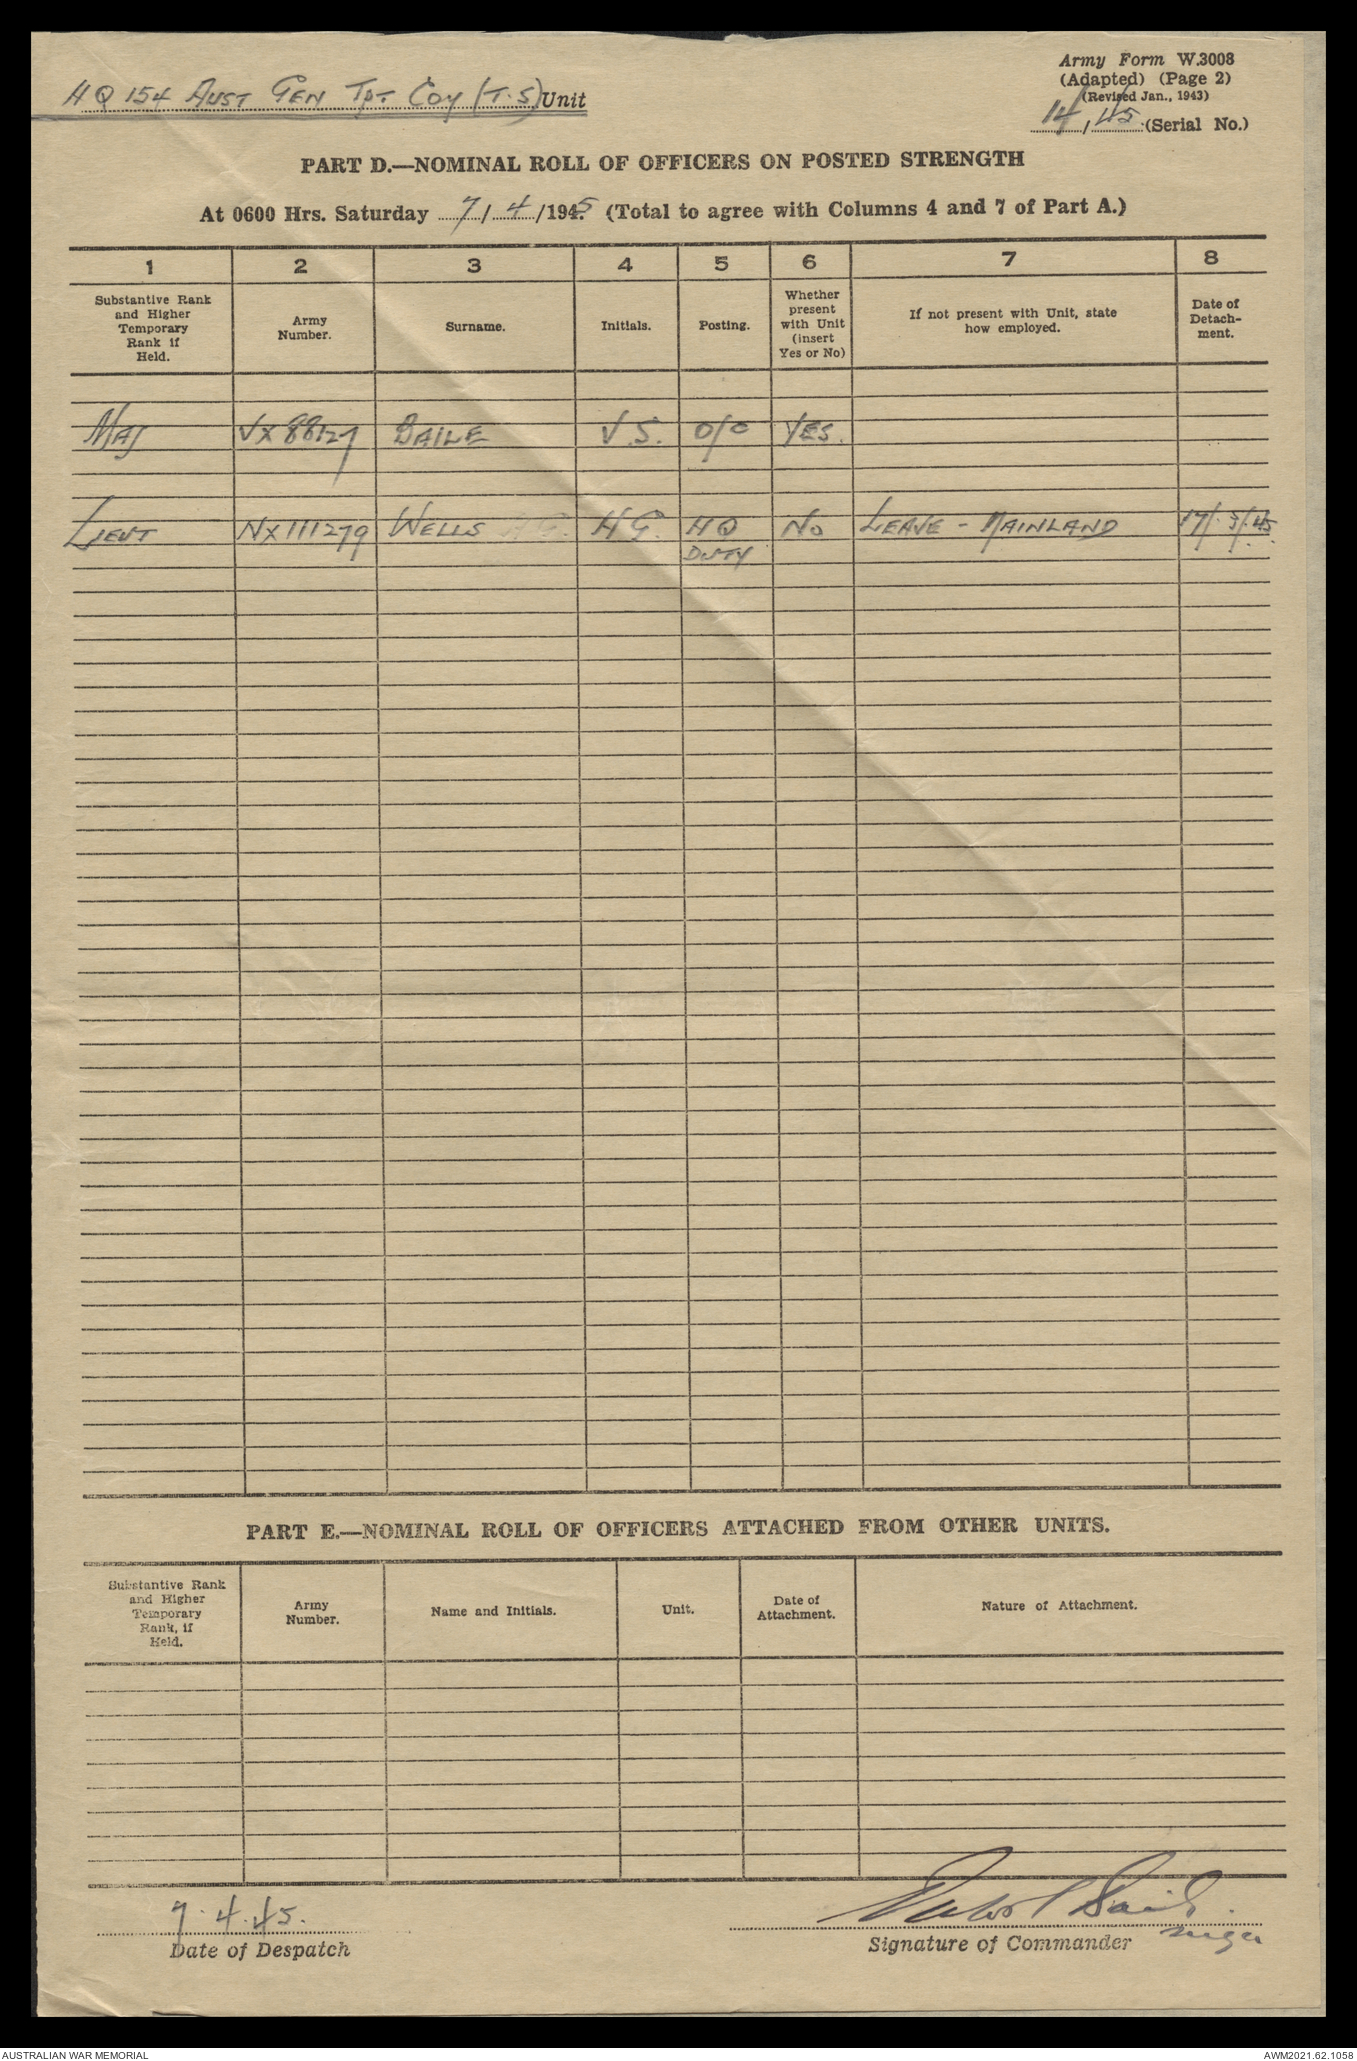 Army Form W.3008
(Adapted) (Page 2)
(Revised Jan., 1943)
HQ 154 AUST GEN TPT COY (T.S) Unit
14/45 (Serial No.)
PART D.—NOMINAL ROLL OF OFFICERS ON POSTED STRENGTH
At 0600 Hrs. Saturday 7/4/1945 (Total to agree with Columns 4 and 7 of Part A.)
1 2 3 4 5 6 7 8
Substantive Rank and Higher Temporary Rank if Held.
Army Number.
Surname.
Initials.
Posting.
Whether present with Unit (insert Yes or No)
If not present with Unit, state how employed.
Date of Detach-ment.
MAJ VX88127 BAILE V.S. O/C YES.
LIEUT NX111279 WELLS H.G. HQ DUTY NO LEAVE - MAINLAND 17/3/45.
PART E.—NOMINAL ROLL OF OFFICERS ATTACHED FROM OTHER UNITS.
Substantive Rank and Higher Temporary Rank, if Held.
Army Number.
Name and Initials.
Unit.
Date of Attachment.
Nature of Attachment.
7.4.45.
Date of Despatch
Signature of Commander
AUSTRALIAN WAR MEMORIAL
AWM2021.62.1058